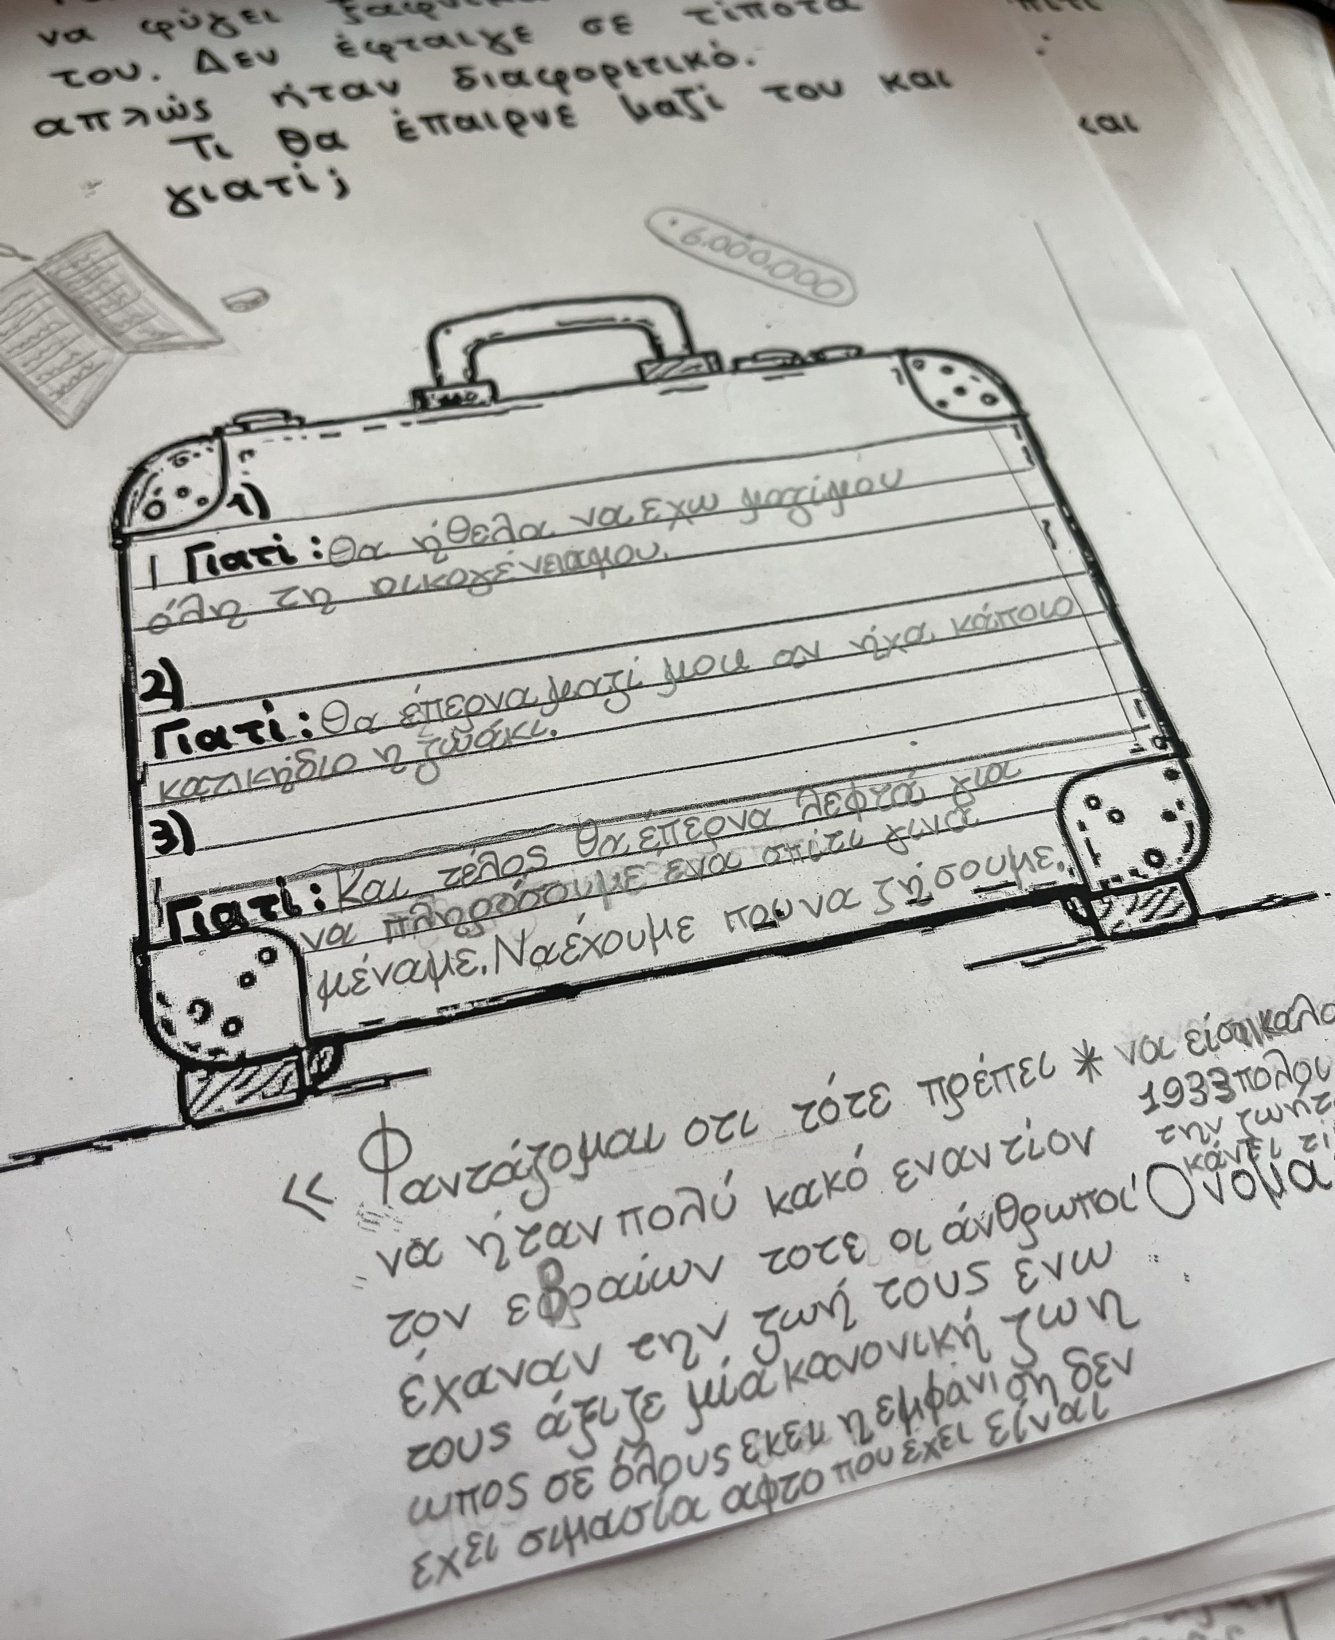 να φύγει ξαφνικά
του. Δεν έφταιγε σε τίποτα
απλώς ήταν διαφορετικό.
Τι θα έπαιρνε μαζί του και
γιατί;
και
6.000.000
1)
Γιατί: Θα ήθελα να εχω μαζίμου
όλη τη οικογένειαμου.
2)
Γιατί: Θα έπερνα μαζί μου αν ήχα κάποιο
κατικήδιο η ζωάκι.
3)
Γιατί: Και τέλος θα έπερνα λεφτά για
να πληρόσουμε ενα σπίτι για να
μέναμε. Να έχουμε που να ζήσουμε.
« Φαντάζομαι οτι τότε πρέπει * να είσαι καλο
να ήταν πολύ κακό εναντίον
τον εβραίων τοτε οι άνθρωποι
έχαναν την ζωή τους ένω
τους άξιζε μία κανονική ζωη
ωπος σε όλους εκει η εμφάνιση δεν
έχει σιμασία αφτο που έχει είναι
1933 πολου
την ζωή
κάνει
Όνομα